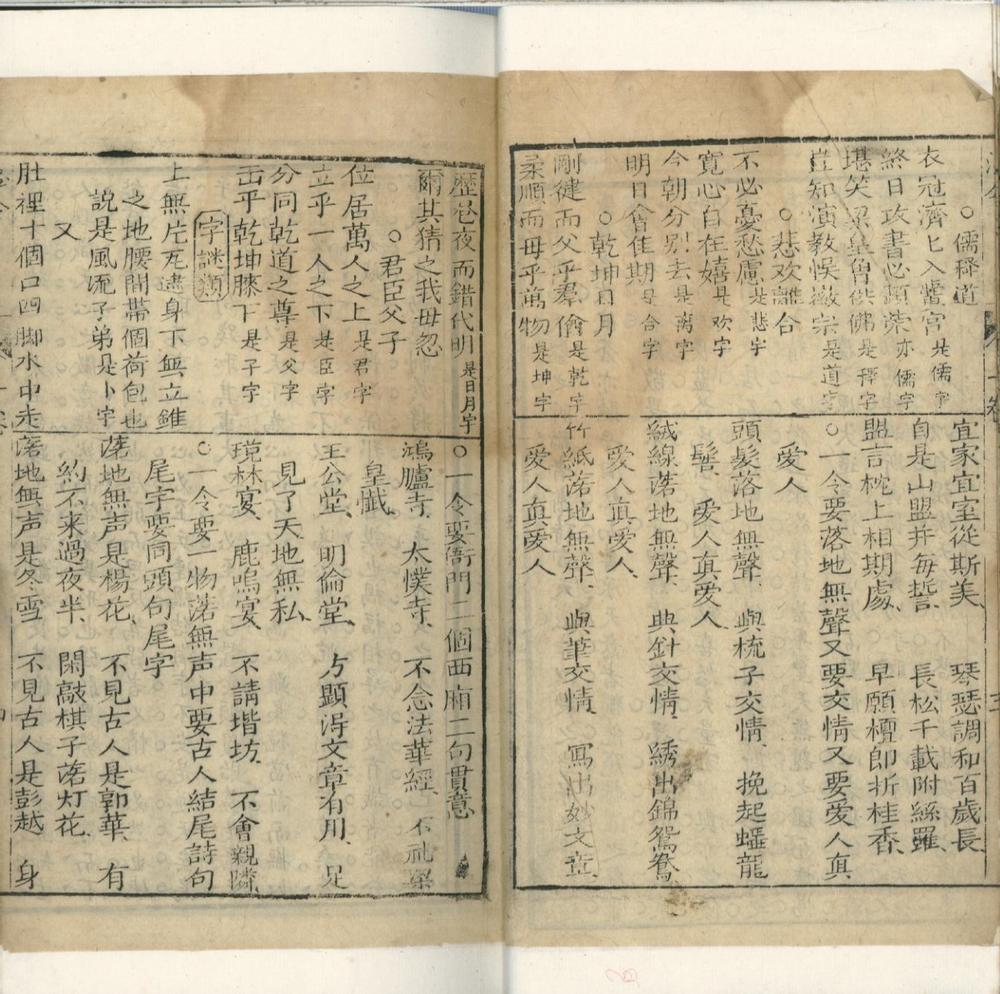 ○儒釋道
衣冠濟匕入黌宮是儒字
終日攻書必顕荣亦儒字
堪笑梁皇曾供佛是釋字
豈知演教悞徽宗是道字
○悲欢離合
不必憂愁慮是悲字
寬心自在嬉是欢字
今朝分别去是离字
明日會佳期是合字
○乾坤日月
剛健而父乎羣倫是乾字
柔順而母乎萬物是坤字
宜家宜室從斯美 琴瑟調和百歲長
自是山盟并每誓 長松千載附絲羅
盟言枕上相期處 早願 即折桂香
○一令要落地無聲又要交情又要愛人真
愛人
頭髮落地無聲、與梳子交情、挽起蟠龍
髻、愛人真愛人
絨線落地無聲、與針交情、綉出錦鴛鴦
愛人真愛人
竹紙落地無聲、與筆交情、寫出妙文章、
愛人真愛人
歷 夜而錯代明是日月字
爾其猜之我毋忽
○君臣父子
位居萬人之上是君字
立乎一人之下是臣字
分同乾道之尊是父字
乎乾坤膝下是子字
字謎類
上無片瓦遮身下無立錐
之地腰間帶個荷包也
說是風流子弟是卜字
又
肚裡十個口四脚水中走
○一令要衙門二個西廂二句貫意
鴻臚寺、太樸寺、不念法華經、不礼梁
皇懺
王公堂、明倫堂、方顕得文章有用、足
見了天地無私
瓊林宴、鹿鳴宴、不請堦坊、不會親隣
○一令要一物落無声中要古人結尾詩句
尾字要同頭句尾字
落地無声是楊花、不見古人是郭華、有
約不来過夜半 閑敲棋子落灯花
落地無声是冬雪 不見古人是彭越 身